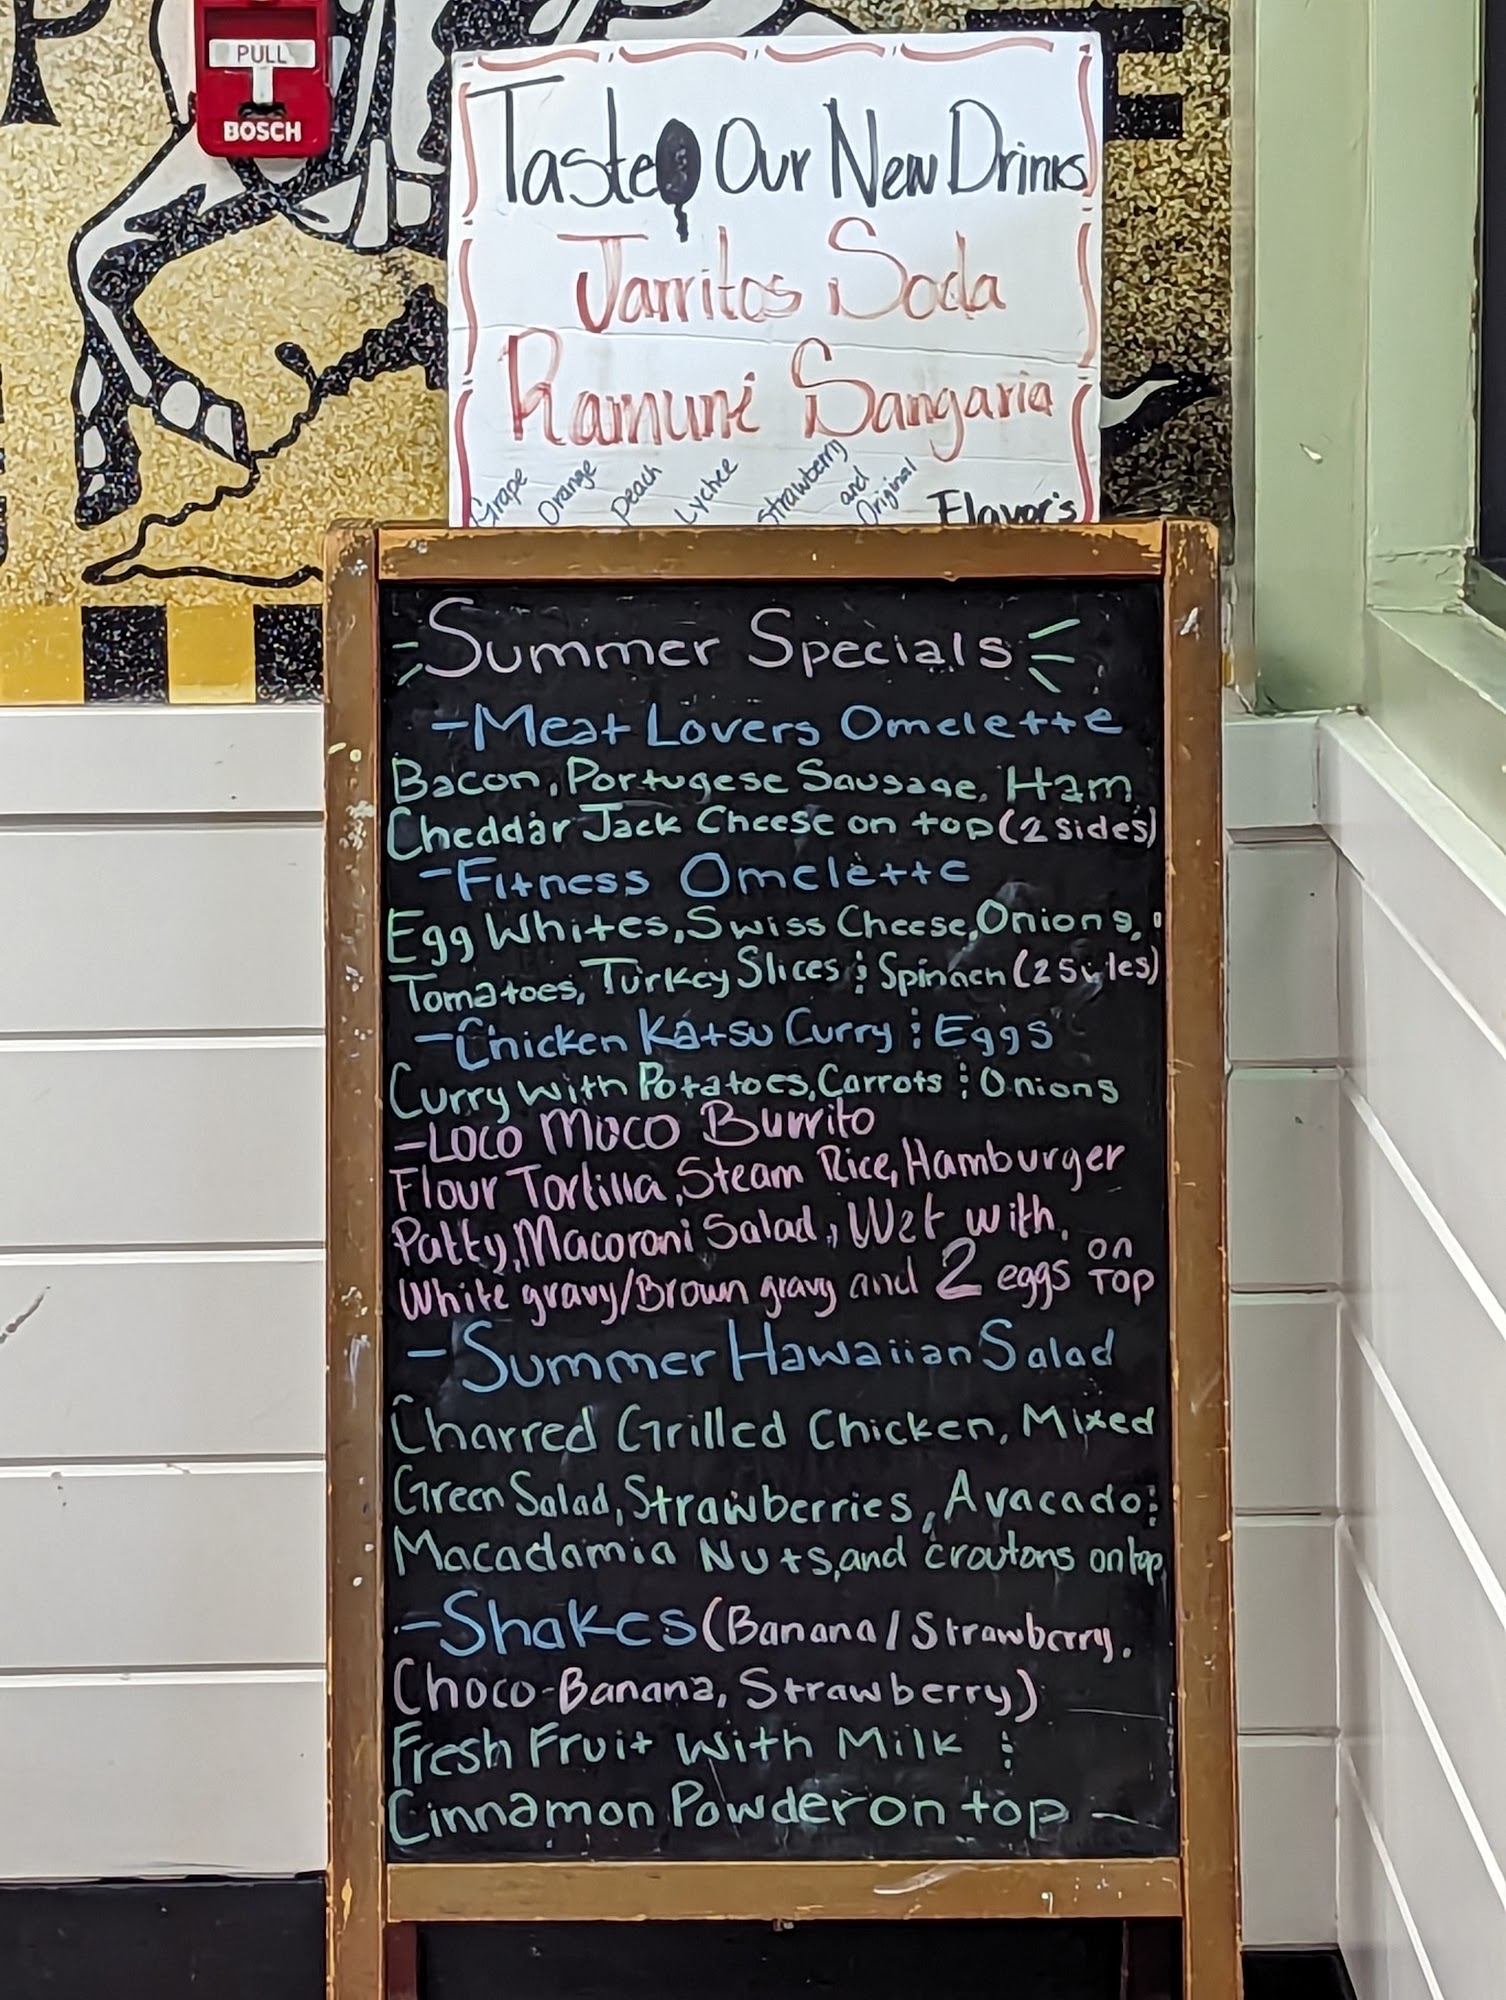 PULL
BOSCH
Taste Our New Drinks
Jarritos Soda
Ramune Sangaria
Grape Orange peach Lychee strawberry and Original Flavor's
Summer Specials
-Meat Lovers Omelette
Bacon, Portugese Sausage, Ham
Cheddar Jack Cheese on top (2 sides)
-Fitness Omelette
Egg Whites, Swiss Cheese, Onions,
Tomatoes, Turkey Slices & Spinach (2 Sides)
-Chicken Katsu Curry & Eggs
Curry with Potatoes, Carrots & Onions
-Loco Moco Burrito
Flour Tortilla, Steam Rice, Hamburger
Patty, Macoroni Salad, Wet with
White gravy/Brown gravy and 2 eggs on TOP
-Summer Hawaiian Salad
Charred Grilled Chicken, Mixed
Green Salad, Strawberries, Avacado &
Macadamia Nuts, and croutons on top
-Shakes (Banana/Strawberry,
Choco-Banana, Strawberry)
Fresh Fruit with Milk &
Cinnamon Powder on top -